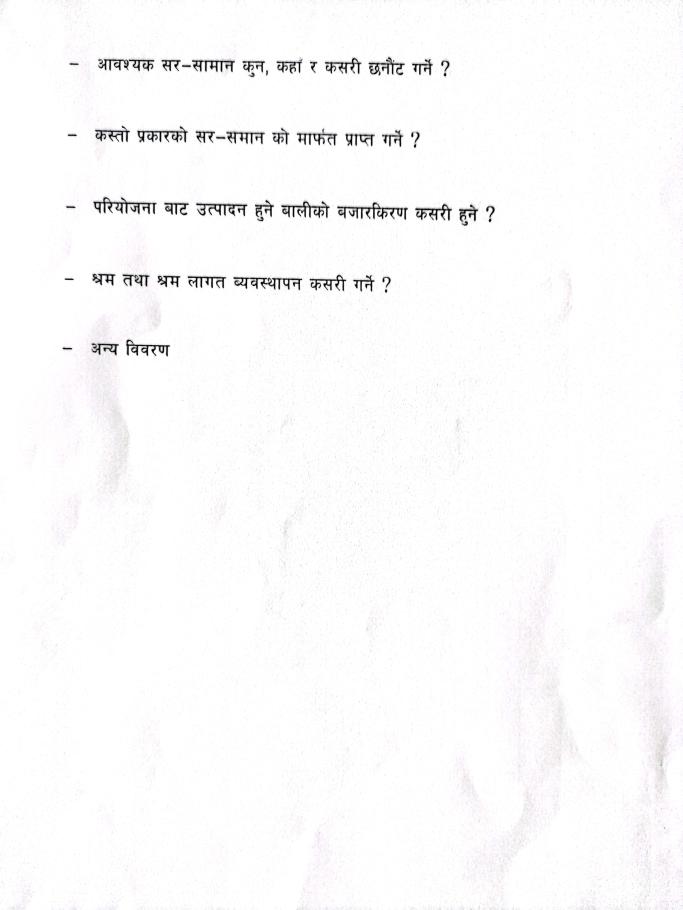 - आवश्यक सर-सामान कुन, कहाँ र कसरी छनौट गर्ने ?
- कस्तो प्रकारको सर-समान को मार्फत प्राप्त गर्ने ?
- परियोजना बाट उत्पादन हुने बालीको बजारकिरण कसरी हुने ?
- श्रम तथा श्रम लागत व्यवस्थापन कसरी गर्ने ?
- अन्य विवरण